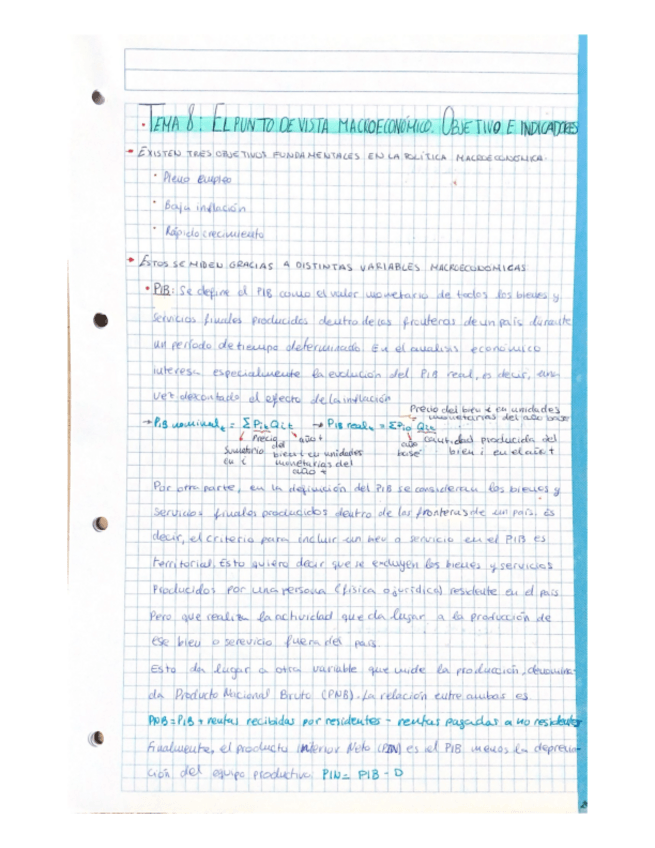 · TEMA 8: EL PUNTO DE VISTA MACROECONÓMICO. OBJETIVO E INDICADORES
EXISTEN TRES OBJETIVOS FUNDAMENTALES EN LA POLÍTICA MACROECONÓMICA.
· Pleno empleo
· Baja inflación
· Rápido crecimiento
ESTOS SE MIDEN GRACIAS A DISTINTAS VARIABLES MACROECONÓMICAS
· PIB: Se define el PIB como el valor monetario de todos los bienes y
servicios finales producidos dentro de las fronteras de un país durante
un período de tiempo determinado. En el análisis económico
interesa especialmente la evolución del PIB real, es decir, una
vez descontado el efecto de la inflación
Precio del bien i en unidades
monetarias del año base
→ PIB nominal t = Σ Pit Qit → PIB real t = Σ Pi0 Qit
Precio del año t
año base
cantidad producida del
bien i en el año t
Sumatorio en i
bien i en unidades
monetarias del
año t
Por otra parte, en la definición del PIB se consideran los bienes y
servicios finales producidos dentro de las fronteras de un país. Es
decir, el criterio para incluir un bien o servicio en el PIB es
territorial. Esto quiere decir que se excluyen los bienes y servicios
Producidos por una persona (física o jurídica) residente en el país
Pero que realiza la actividad que da lugar a la producción de
ese bien o serevicio fuera del país.
Esto da lugar a otra variable que mide la producción, denomina-
da Producto Nacional Bruto (PNB). La relación entre ambas es
PNB = PIB + rentas recibidas por residentes - rentas pagadas a no residentes
Finalmente, el producto interior Neto (PIN) es el PIB menos la deprecia-
ción del equipo productivo PIN = PIB - D